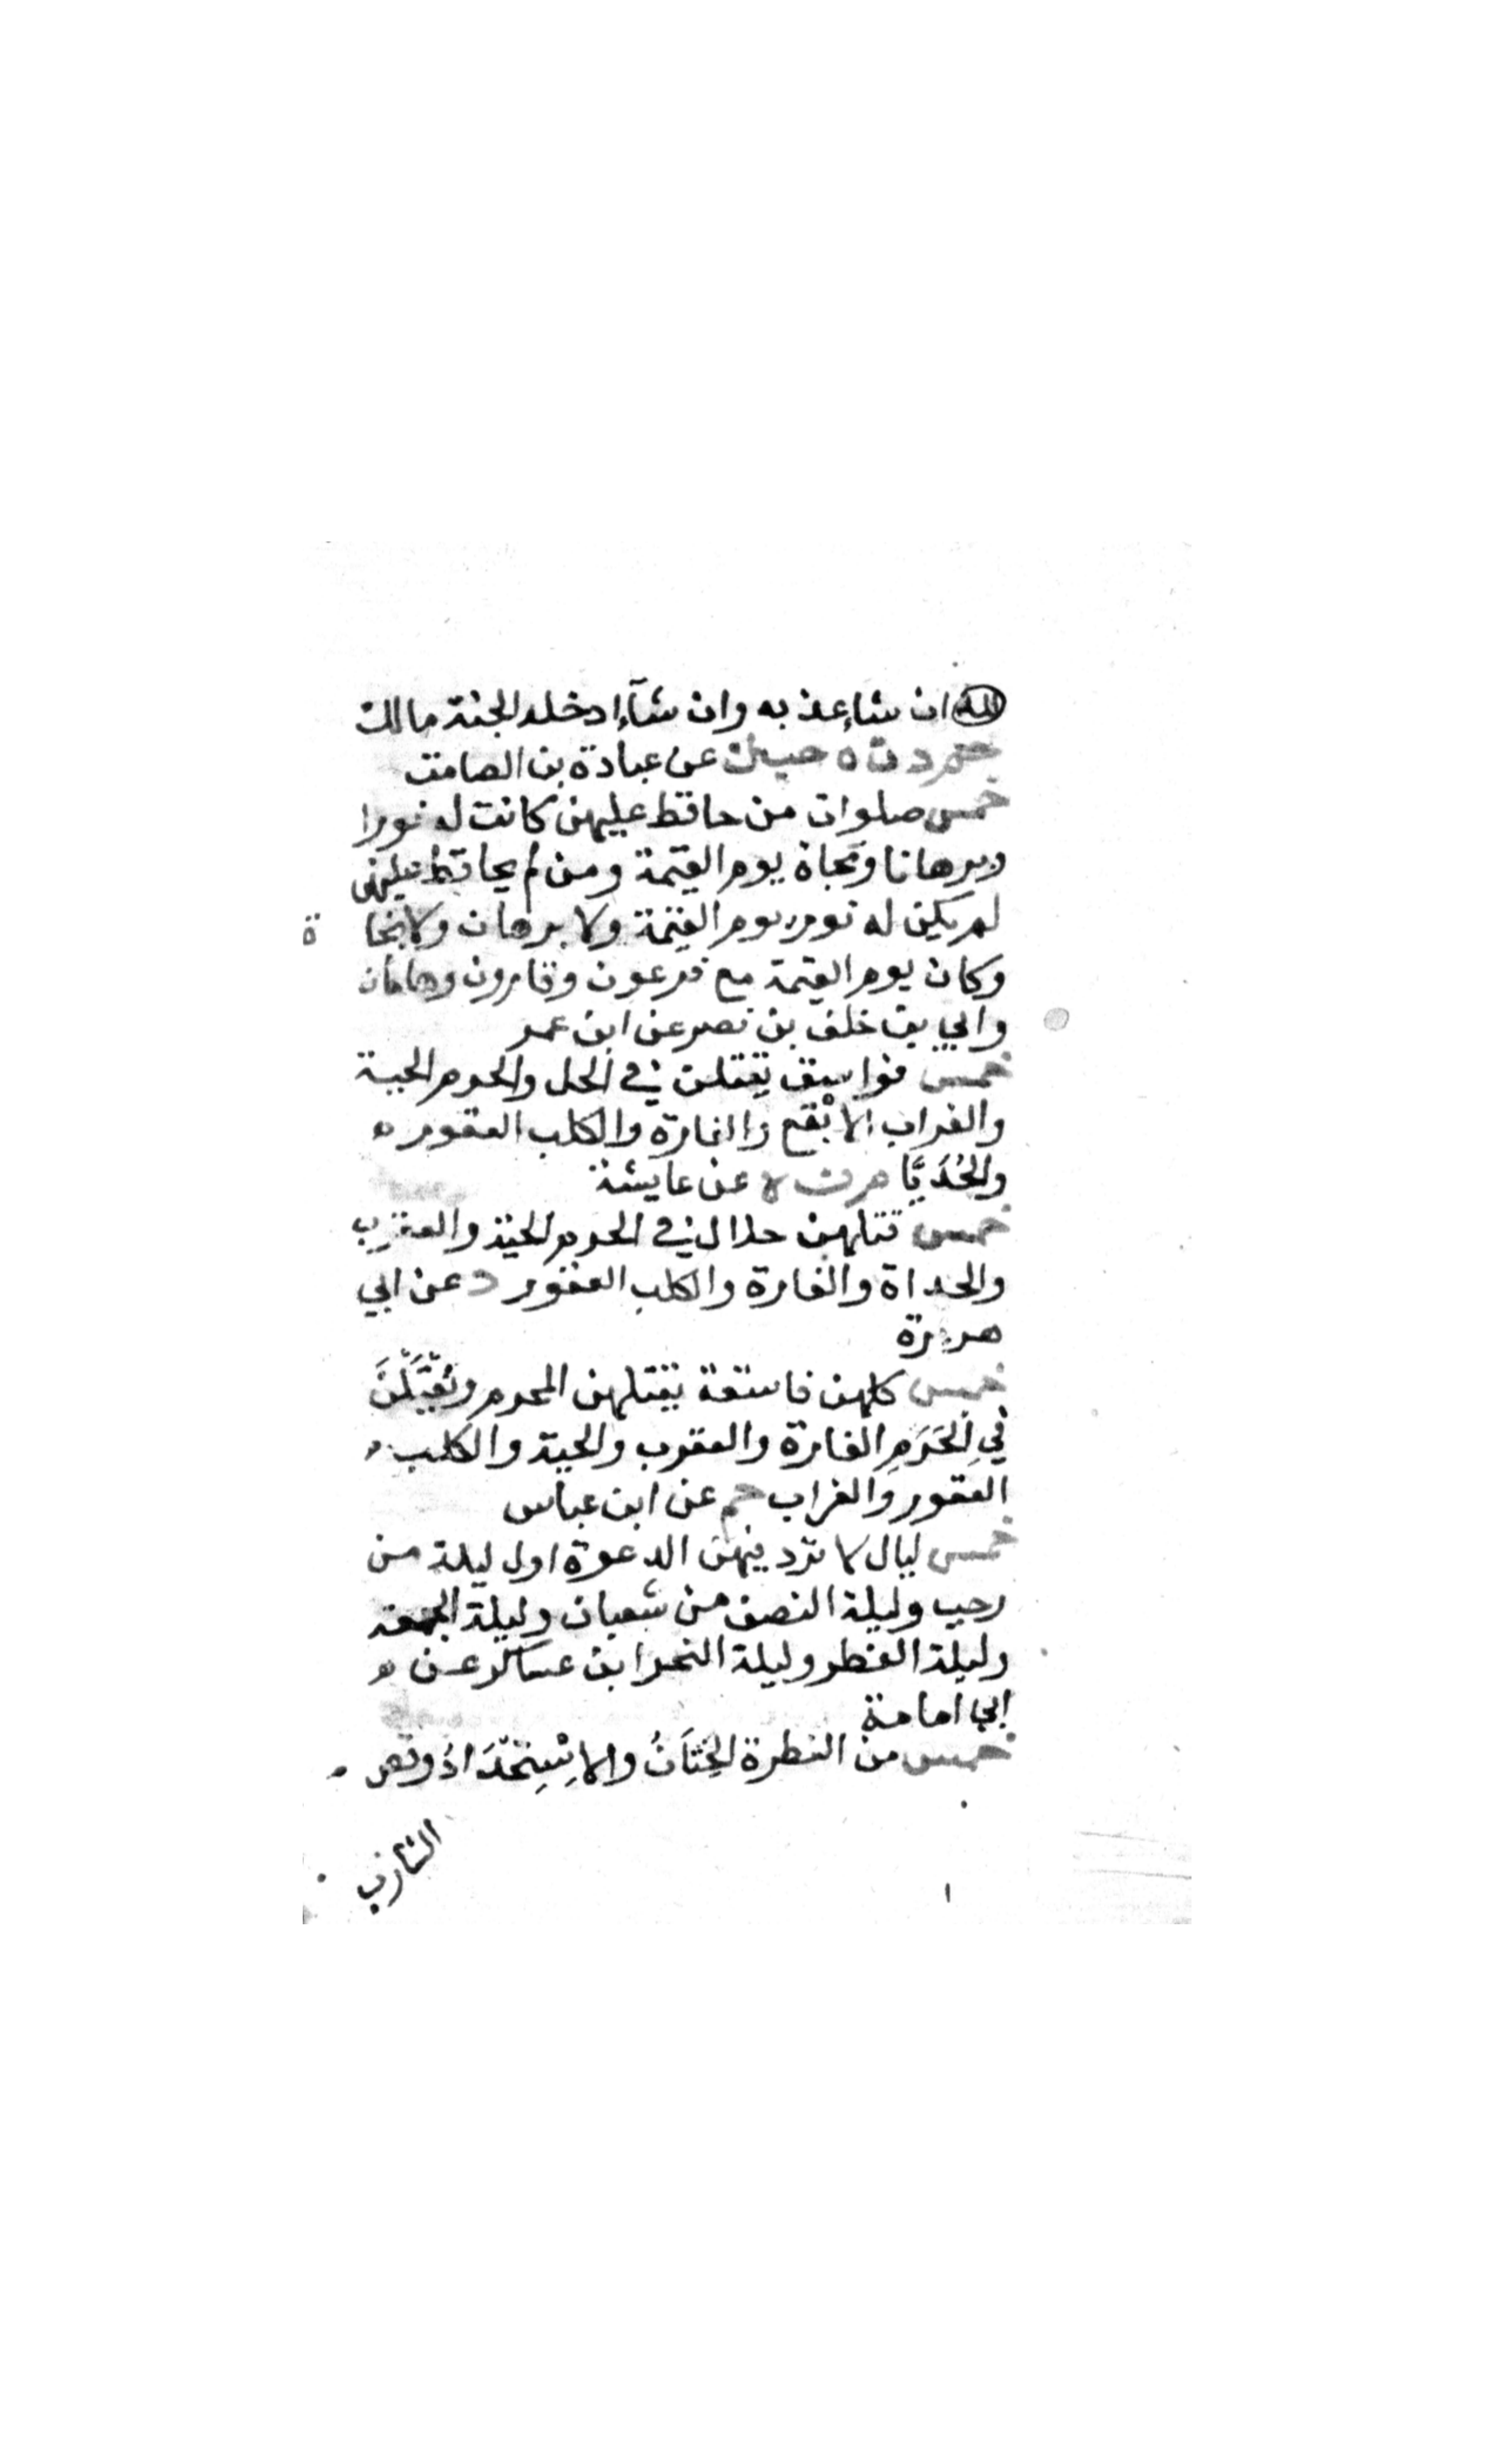 الله ان شاء عذبه وان شآء ادخله الجنة مالك
حم د ن ه حب ك عن عبادة بن الصامت
خمس صلوات من حافظ عليهن كانت له نورا
وبرهانا ونجاة يوم القيمة ومن لم يحافظ عليهن
لم يكن له نور يوم القيمة ولا برهان ولا نجاة
وكان يوم القيمة مع فرعون وقارون وهامان
وابي بن خلف بن نصر عن ابن عمر
خمس فواسق تقتلن في الحل والحرم الحية
والغراب الابْقع والفارة والكلب العقور
والحُدَيَّا م ن ه عن عايشة
خمس قتلهن حلال في الحرم الحية والعقرب
والحداة والفارة والكلب العقور د عن ابي
هريرة
خمس كلهن فاسقة يقتلهن المحرم ويُقْتَلْنَ
فِي الحَرَمِ الفارة والعقرب والحية والكلب
العقور والغراب حم عن ابن عباس
خمس ليال لا ترد فيهن الدعوة اول ليلة من
رجب وليلة النصف من شعبان وليلة الجمعة
وليلة الفطر وليلة النحر ابن عساكر عن
ابي امامة
خمس من الفطرة الخِتَانُ والاِسْتِحْدَادُ وقص
الشارب
١